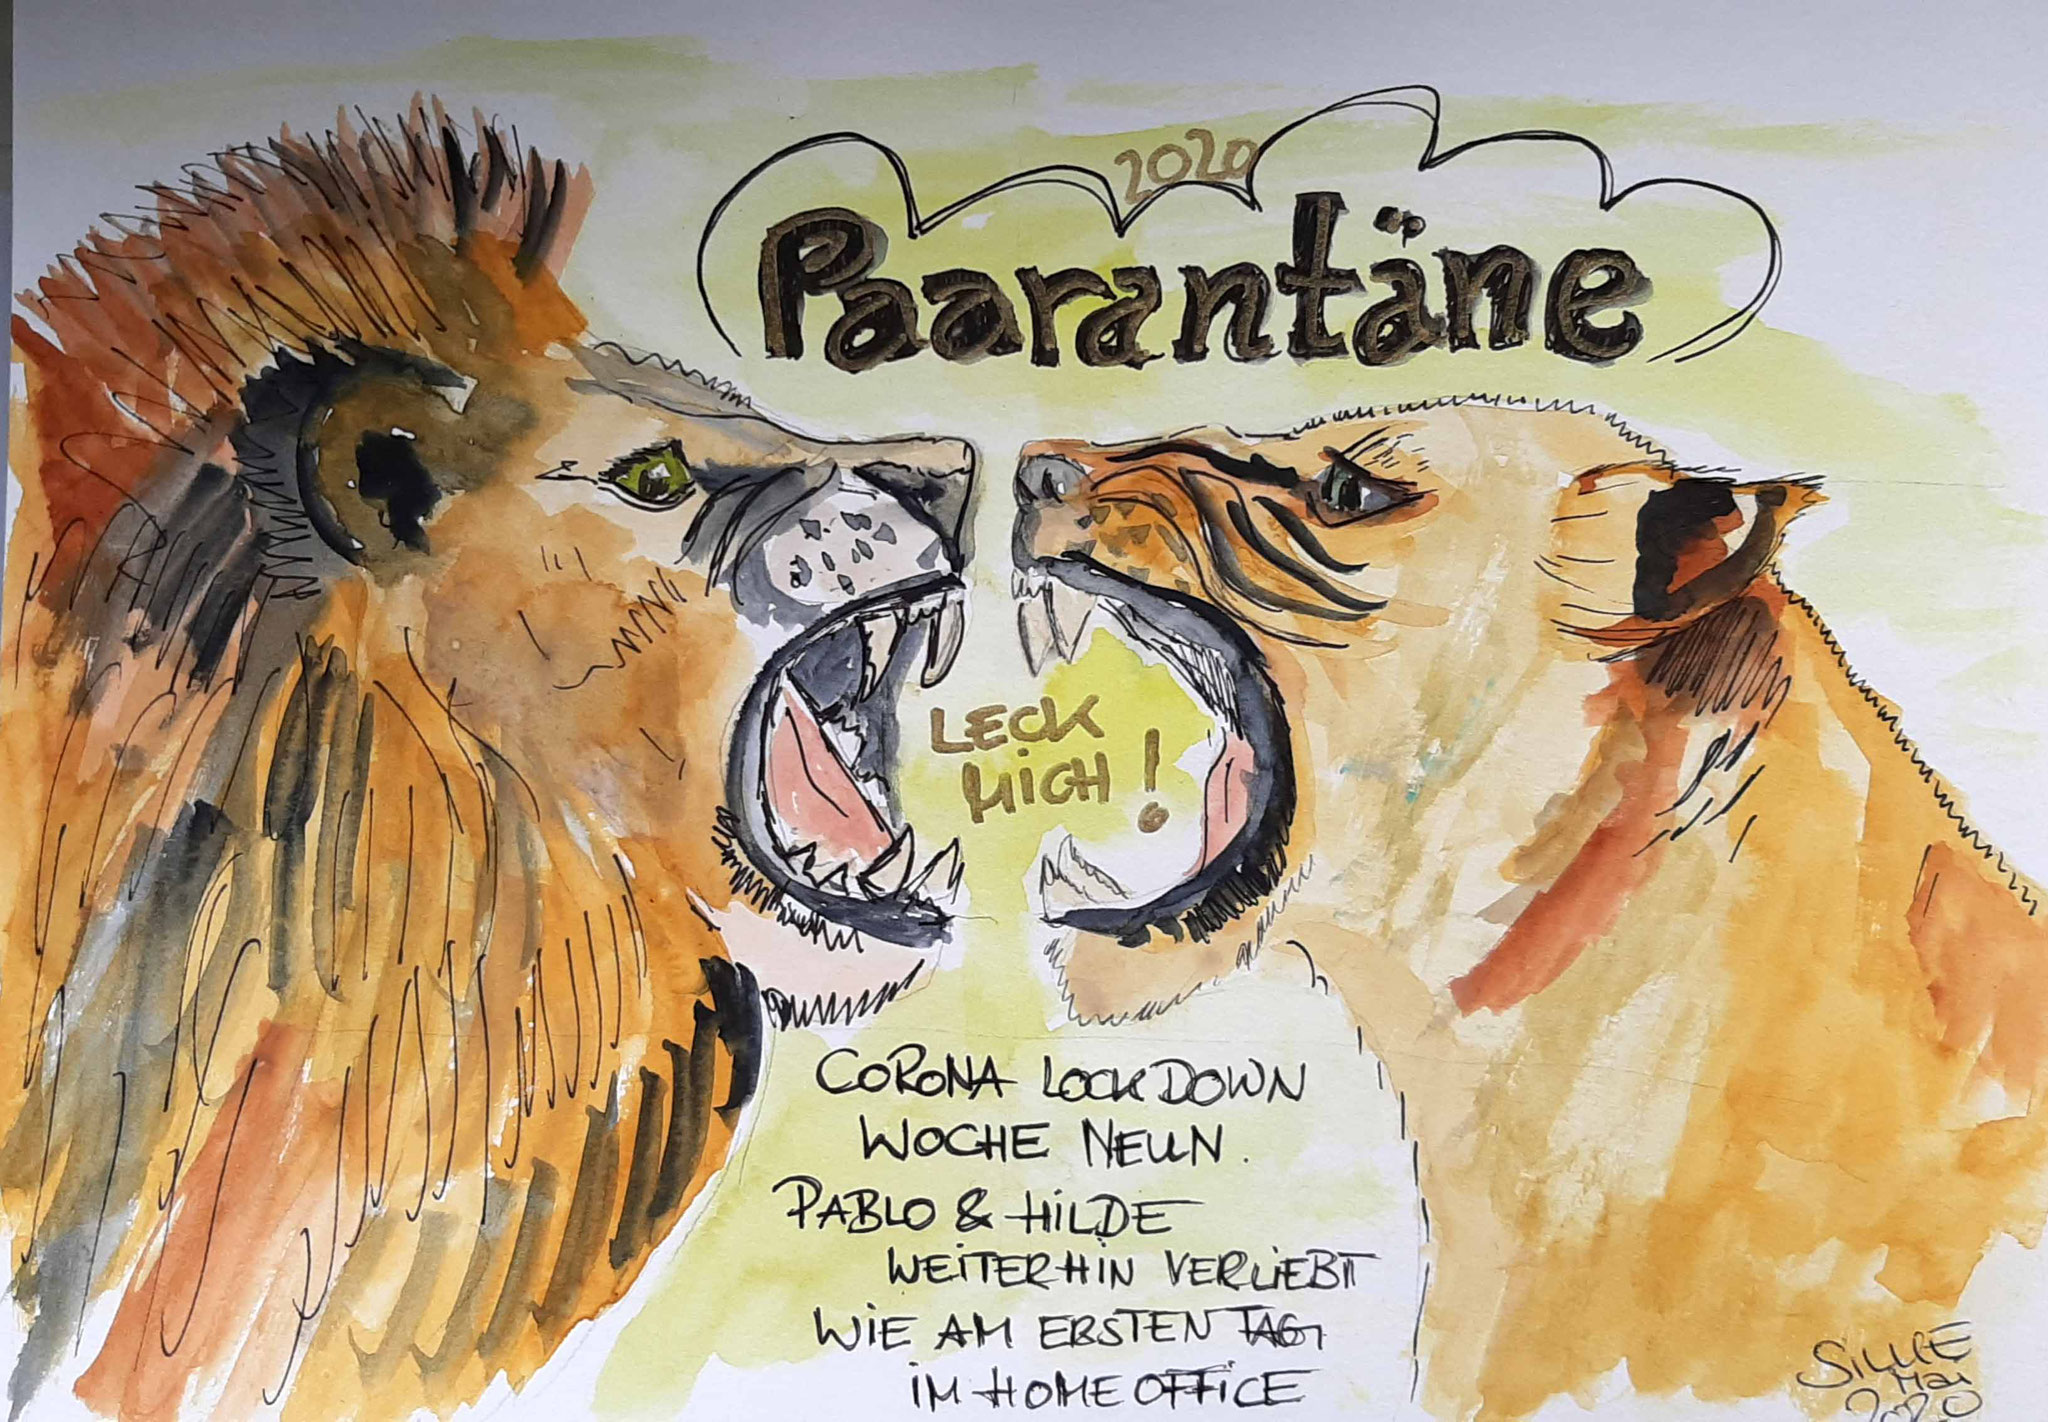 2020
Paarantäne
LECK
MICH!
CORONA LOCKDOWN
WOCHE NEUN.
PABLO & HILDE
WEITERHIN VERLIEBT
WIE AM ERSTEN TAG
IM HOMEOFFICE
Mai
2020